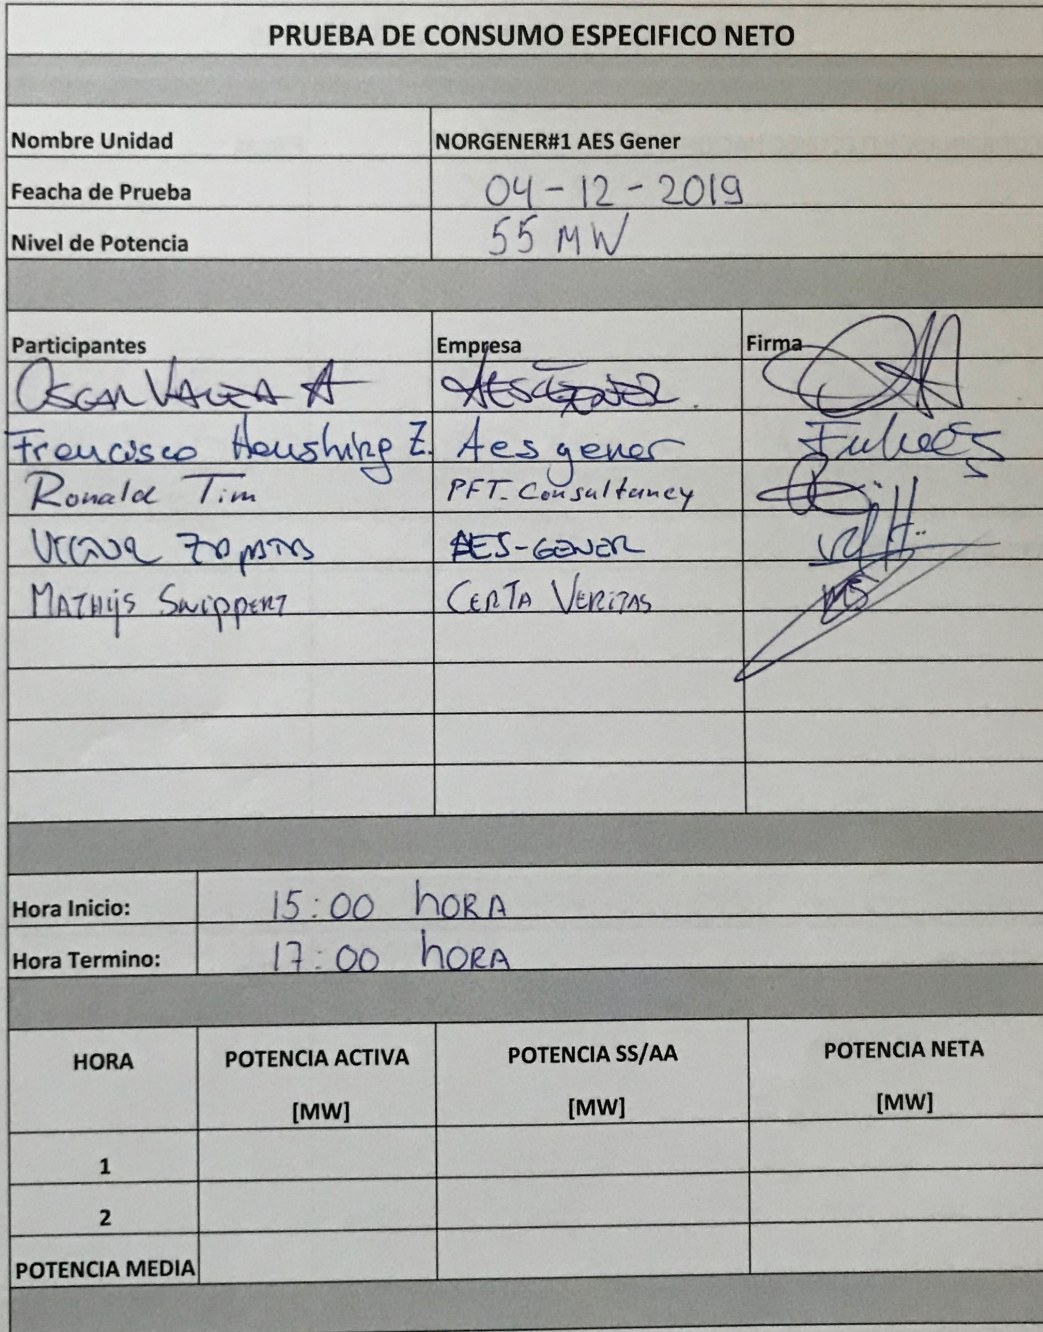 PRUEBA DE CONSUMO ESPECIFICO NETO
Nombre Unidad NORGENER#1 AES Gener
Feacha de Prueba 04-12-2019
Nivel de Potencia 55 MW
Participantes Empresa Firma
OSCAR A AES GENER
Francisco Z. Aes gener
Ronald Tim PFT. Consultancy
AES-GENER
MATHIJS SWIPPERT CERTA VERITAS MS
Hora Inicio: 15:00 hORA
Hora Termino: 17:00 hORA
HORA POTENCIA ACTIVA POTENCIA SS/AA POTENCIA NETA
[MW] [MW] [MW]
1
2
POTENCIA MEDIA